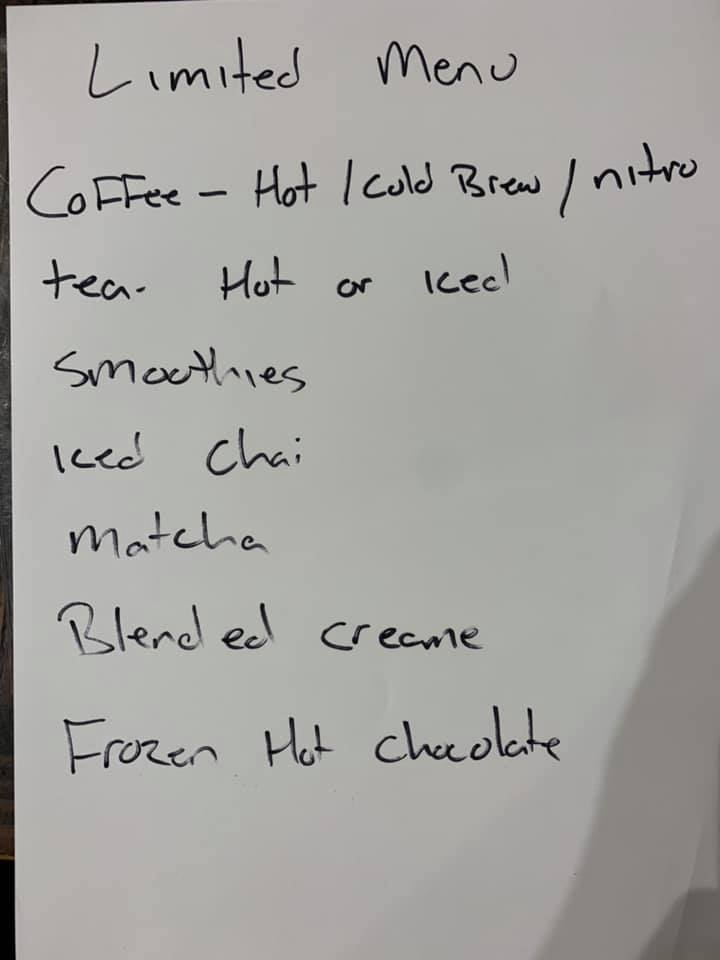 Limited Menu
Coffee - Hot / Cold Brew / nitro
tea - Hot or Iced
Smoothies
Iced Chai
Matcha
Blended creame
Frozen Hot Chocolate